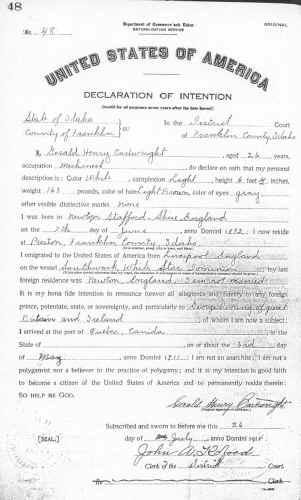 48
Department of Commerce and Labor
NATURALIZATION SERVICE
ORIGINAL
No. 48
UNITED STATES OF AMERICA
DECLARATION OF INTENTION
(Invalid for all purposes seven years after the date hereof)
State of Idaho
County of Franklin
ss:
In the District Court
of Franklin County, Idaho
I, Gerald Henry Cartwright, aged 26 years,
occupation, do declare on oath that my personal
description is: Color White, complexion Light, height 6 feet inches,
weight 163 pounds, color of hair Light Brown, color of eyes gray
other visible distinctive marks none
I was born in Stafford Shire England
on the 7th day of June, anno Domini; I now reside
at Preston, Franklin County, Idaho
I emigrated to the United States of America from Liverpool England
on the vessel Southwark White Star Dominion; my last
foreign residence was England. I am not married
It is my bona fide intention to renounce forever all allegiance and fidelity to any foreign
prince, potentate, state, or sovereignty, and particularly to George V King of great
Britain and Ireland, of whom I am now a subject;
I arrived at the port of Quebec, Canada
State of, on or about the 3rd day
of May, anno Domini; I am not an anarchist; I am not a
polygamist nor a believer in the practice of polygamy; and it is my intention in good faith
to become a citizen of the United States of America and to permanently reside therein:
SO HELP ME GOD.
Gerald Henry Cartwright
Subscribed and sworn to before me this 26
[SEAL.]
day of July, anno Domini
John
Clerk of the District Court.